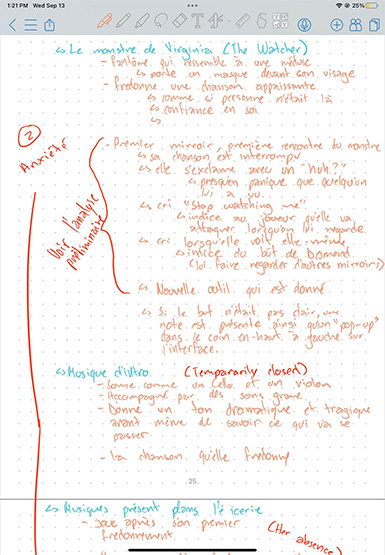 1:21 PM Wed Sep 13
25%
↳ Le monstre de Virginia (The Watcher)
- Fantôme qui ressemble à une méduse
↳ porte un masque devant son visage
- Fredonne une chanson appaissante
↳ comme si personne n'était là
↳ confiance en soi
↳
2
Anxiété
Voir l'analyse préliminaire
- Premier mirroir, première rencontre du monstre
↳ sa chanson est interrompu
↳ elle s'exclame avec un "huh?"
↳ presqu'en panique que quelqu'un
l'a vu.
↳ cri "stop watching me"
↳ indice au joueur qu'elle va
attaquer lorsqu'on lui regarde
↳ cri lorsqu'elle voit elle-même
↳ indice du but de
(lui faire regarder d'autres mirroirs)
↳ Nouvelle outil qui est donné
↳ Si le but n'était pas clair, une
note est présente ainsi qu'un "pop-up"
dans le coin en-haut à gauche sur
l'interface.
↳ Musique d'intro (Temporarily closed)
- Sonne comme un Celo et un violon
- Accompagné par des sons grave
- Donne un ton dramatique et tragique
avant même de savoir ce qui va se
passer
- La chanson qu'elle fredonne
25
↳ Musiques présent dans l'épicerie
- Joue après son premier (Her absence)
fredonnement